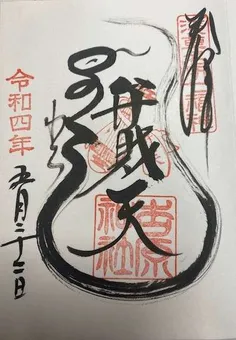 奉拝
弁財天
吉原
神社
令和四年
五月二十二日